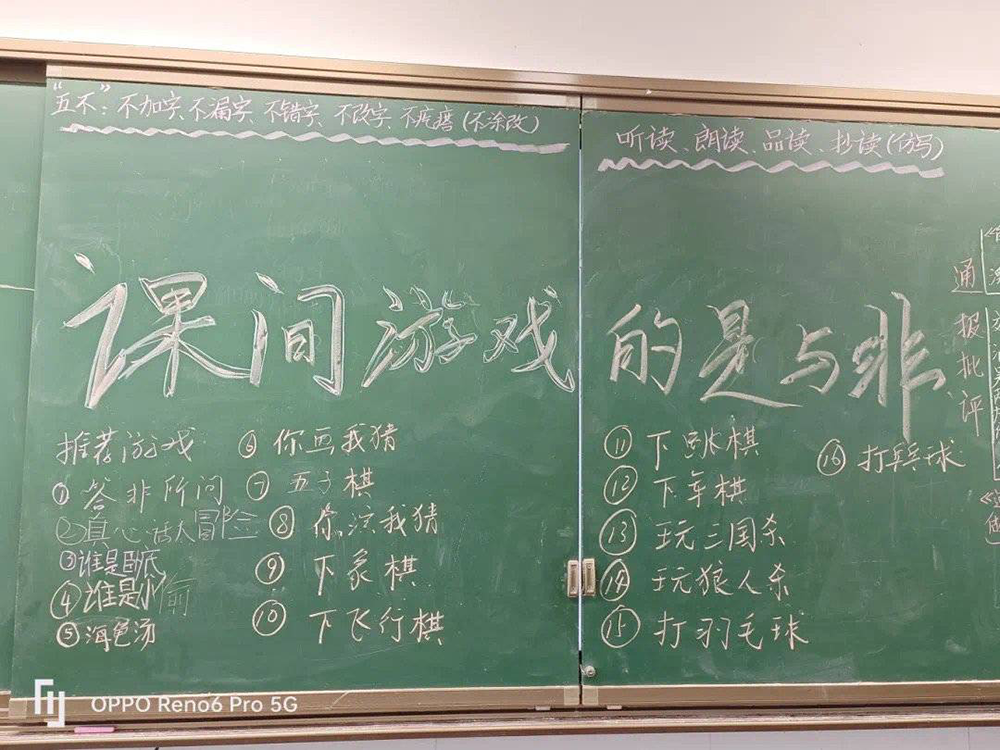 "五不"：不加字、不漏字、不错字、不改字、不疙瘩(不涂改)
听读、朗读、品读、抄读(仿写)
课间游戏的是与非
推荐游戏
①答非所问
②真心话大冒险
③谁是卧底
④谁是小偷
⑤海龟汤
⑥你画我猜
⑦五子棋
⑧你演我猜
⑨下象棋
⑩下飞行棋
⑪下跳棋
⑫下军棋
⑬玩三国杀
⑭玩狼人杀
⑮打羽毛球
⑯打乒乓球
通报批评
OPPO Reno6 Pro 5G